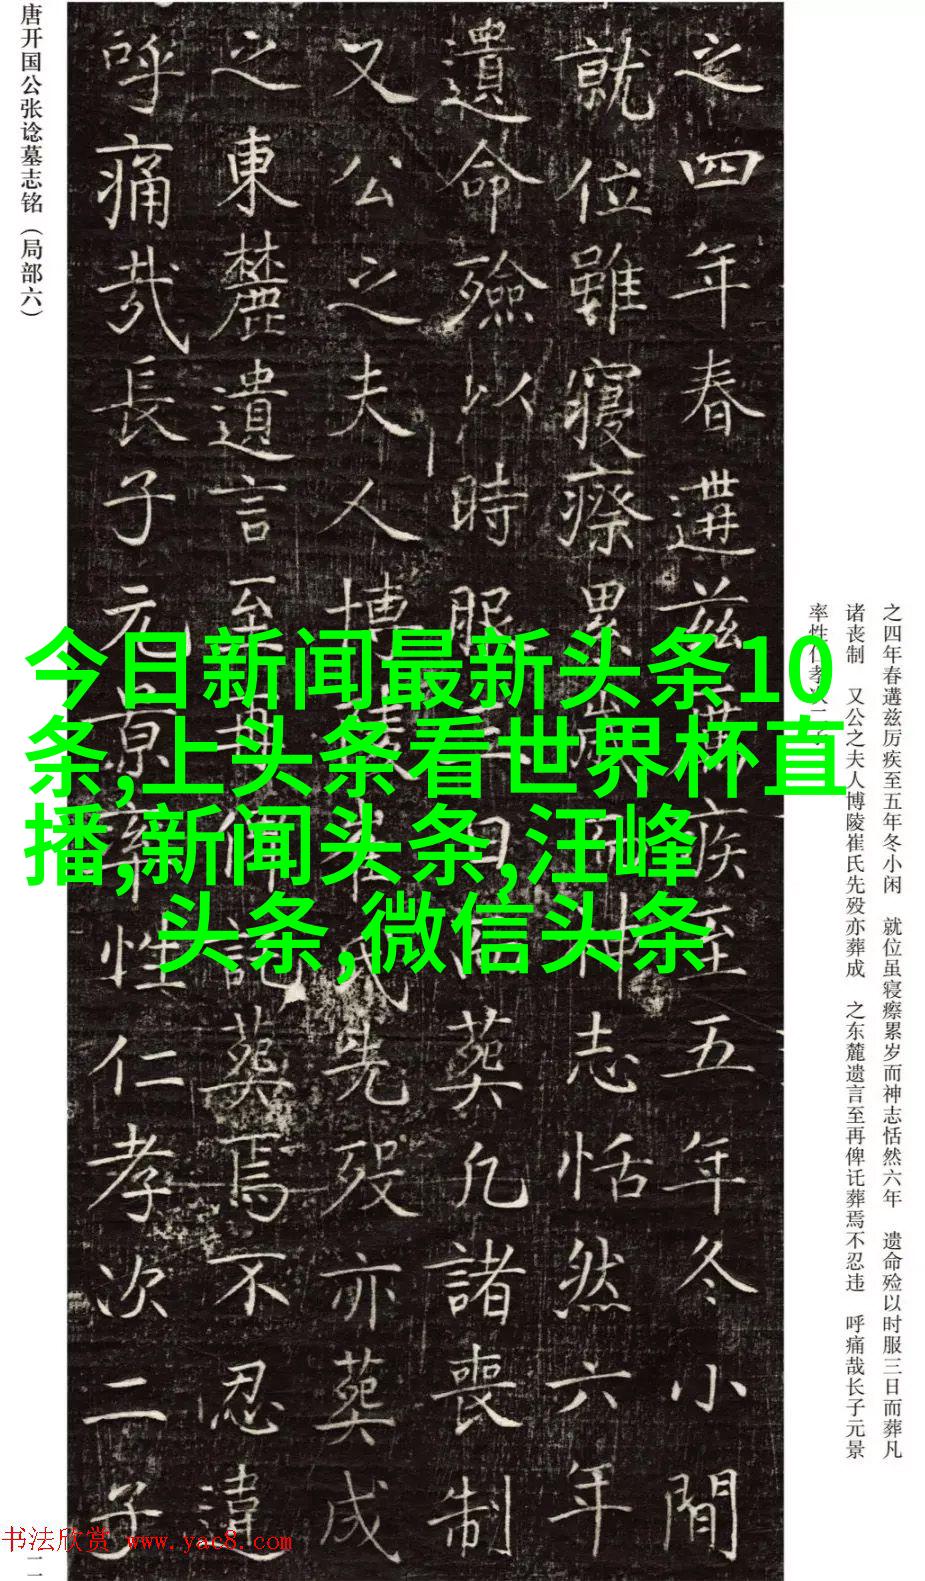 之四年春遘兹厉疾至五年冬小闲 就位虽寝瘵累岁而神志恬然六年 遗命殓以时服三日而葬凡
诸丧制 又公之夫人博陵崔氏先殁亦葬成 之东麓遗言至再俾讬葬焉不忍违 呼痛哉长子元景
率性仁孝
之四年春遘兹厲疾至五年冬小閒
就位雖寢瘵累歲而神志恬然六年
遺命殮以時服三日而葬凡諸喪制
又公之夫人博陵崔氏先殁亦葬成
之東麓遺言至再俾託葬焉不忍違
呼痛哉長子元景率性仁孝次二子
唐开国公张谂墓志铭（局部六）
今日新闻最新头条10
条,上头条看世界杯直
播,新闻头条,汪峰
头条,微信头条
书法欣赏 www.yac8.com
二